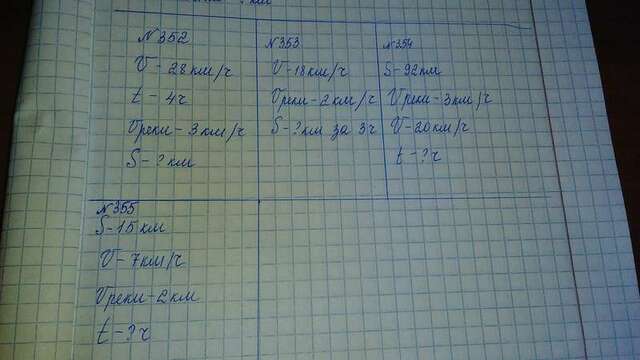 км
№352
V-28км/ч
t-4ч
Vреки-3км/ч
S-?км
№353
V-18км/ч
Vреки-2км/ч
S-?км за 3ч
№354
S-92км
Vреки-3км/ч
V-20км/ч
t-?ч
№355
S-15км
V-7км/ч
Vреки-2км
t-?ч